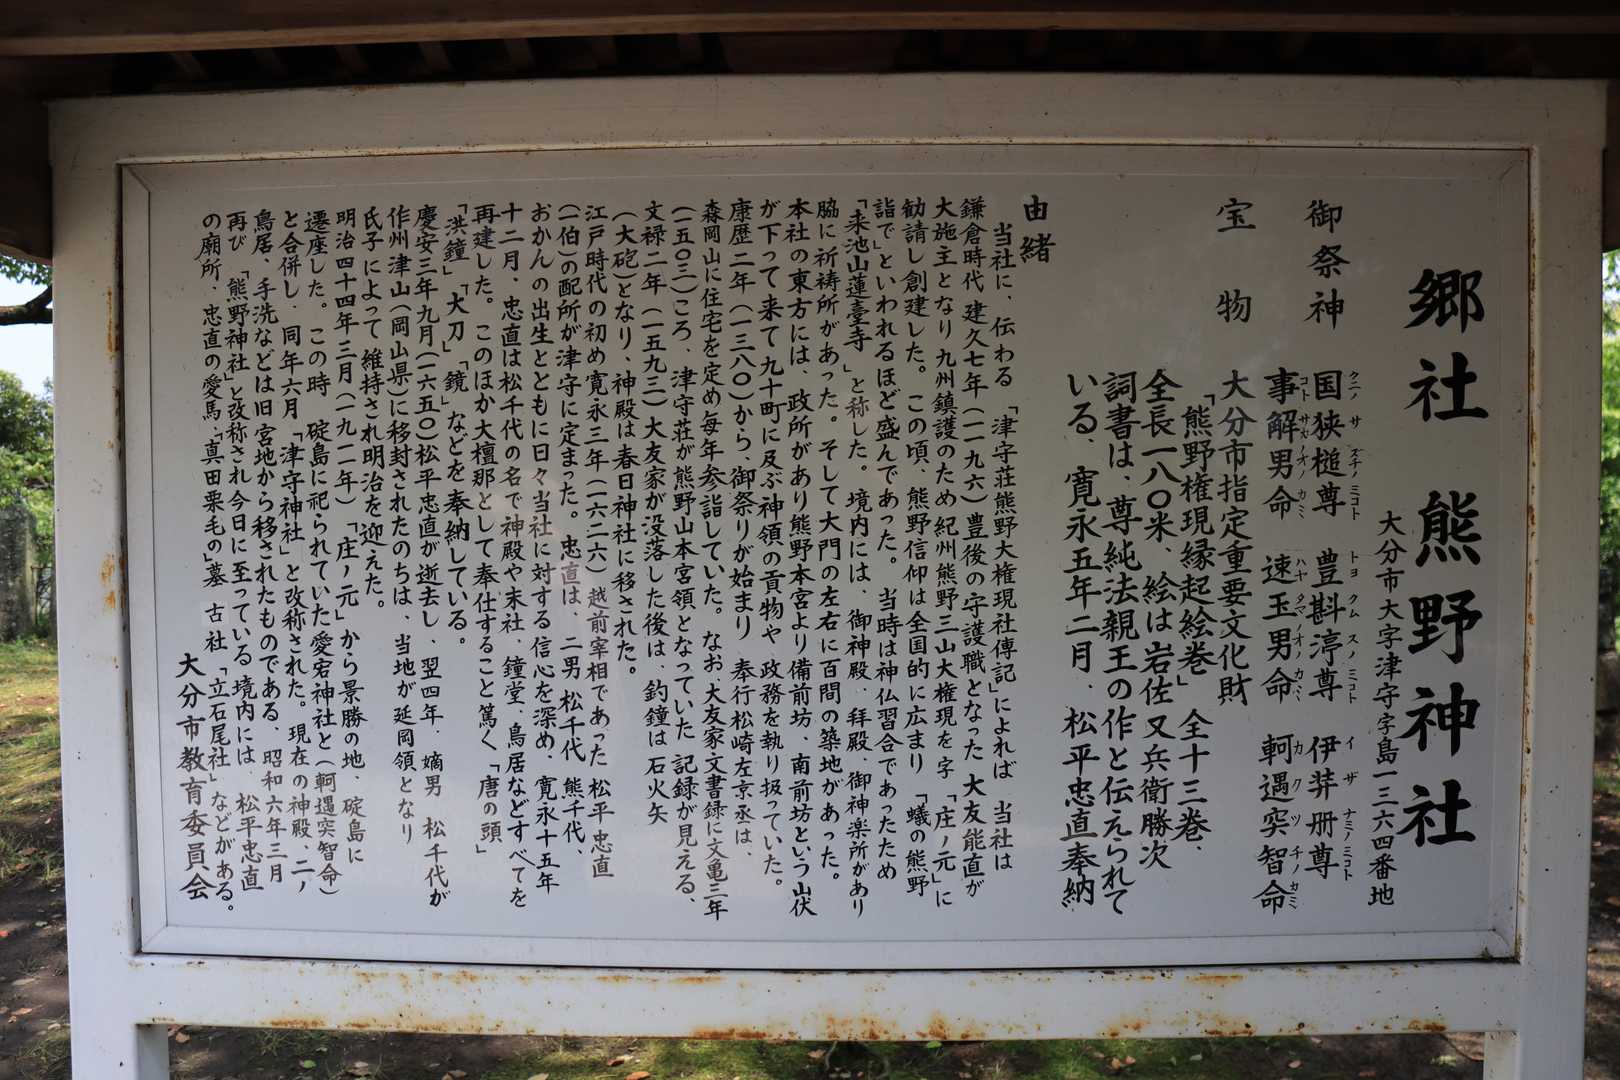 郷社 熊野神社
大分市大字津守字島一三六四番地
御祭神
国狭槌尊 豊斟渟尊 伊弉册尊
クニノサズチノミコト トヨクムスノミコト イザナミノミコト
事解男命 速玉男命 軻遇突智命
コトサカノオノカミ ハヤタマノオノカミ カクツチノカミ
宝物
大分市指定重要文化財
「熊野権現縁起絵巻」全十三巻、
全長一八〇米、絵は岩佐又兵衛勝次
詞書は、尊純法親王の作と伝えられて
いる、寛永五年二月、松平忠直奉納
由緒
当社に、伝わる「津守荘熊野大権現社傳記」によれば 当社は
鎌倉時代 建久七年(一一九六)豊後の守護職となった 大友能直が
大施主となり 九州鎮護のため紀州熊野三山大権現を字「庄ノ元」に
勧請し創建した。この頃、熊野信仰は全国的に広まり「蟻の熊野
詣で」といわれるほど盛んであった。当時は神仏習合であったため
「来池山蓮臺寺」と称した。境内には、御神殿、拜殿、御神楽所があり
脇に祈祷所があった。そして大門の左右に百間の築地があった。
本社の東方には、政所があり熊野本宮より備前坊、南前坊という山伏
が下って来て九十町に及ぶ神領の貢物や、政務を執り扱っていた。
康歴二年(一三八〇)から、御祭りが始まり 奉行松崎左京丞は、
森岡山に住宅を定め毎年参詣していた。なお、大友家文書録に文亀三年
(一五〇三)ころ、津守荘が熊野山本宮領となっていた 記録が見える、
文禄二年(一五九三)大友家が没落した後は、釣鐘は石火矢
(大砲)となり、神殿は春日神社に移された。
江戸時代の初め寛永三年(一六二六)越前宰相であった 松平忠直
(一伯)の配所が津守に定まった。忠直は、二男 松千代 熊千代、
おかんの出生とともに日々当社に対する信心を深め、寛永十五年
十二月、忠直は松千代の名で神殿や末社、鐘堂、鳥居などすべてを
再建した。このほか大檀那として奉仕すること篤く「唐の頭」
「洪鐘」「大刀」「鏡」などを奉納している。
慶安三年九月(一六五〇)松平忠直が逝去し、翌四年、嫡男 松千代が
作州津山(岡山県)に移封されたのちは、当地が延岡領となり
氏子によって維持され明治を迎えた。
明治四十四年三月(一九一一年)「庄ノ元」から景勝の地、碇島に
遷座した。この時 碇島に祀られていた愛宕神社と(軻遇突智命)
と合併し、同年六月「津守神社」と改称された。現在の神殿、二ノ
鳥居、手洗などは旧宮地から移されたものである、昭和六年三月
再び「熊野神社」と改称され今日に至っている、境内には、松平忠直
の廟所、忠直の愛馬「真田栗毛の」墓 古社「立石尾社」などがある。
大分市教育委員会